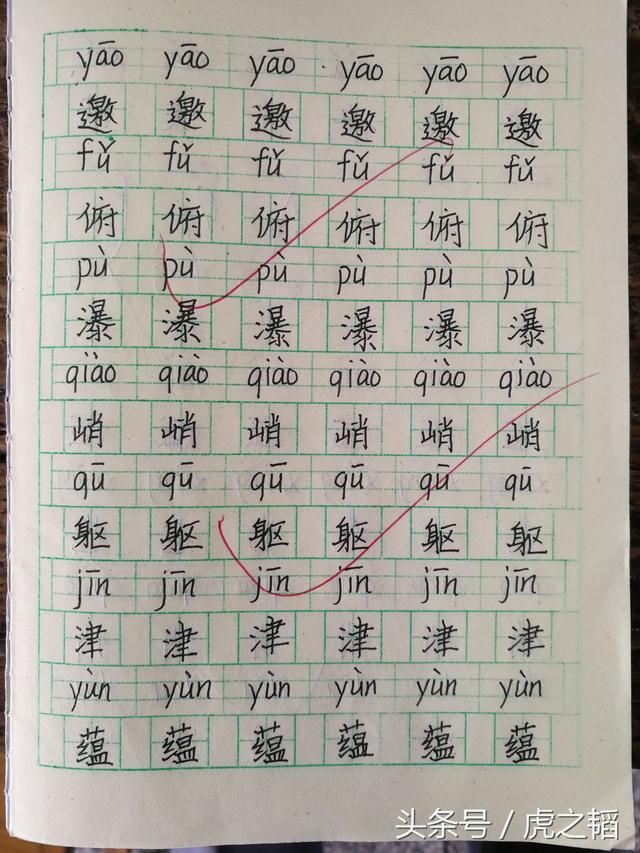 yāo yāo yāo yāo yāo yāo
邀 邀 邀 邀 邀 邀
fǔ fǔ fǔ fǔ fǔ fǔ
俯 俯 俯 俯 俯 俯
pù pù pù pù pù pù
瀑 瀑 瀑 瀑 瀑 瀑
qiào qiào qiào qiào qiào qiào
峭 峭 峭 峭 峭 峭
qū qū qū qū qū qū
躯 躯 躯 躯 躯 躯
jīn jīn jīn jīn jīn jīn
津 津 津 津 津 津
yùn yùn yùn yùn yùn yùn
蕴 蕴 蕴 蕴 蕴 蕴
头条号 / 虎之韬